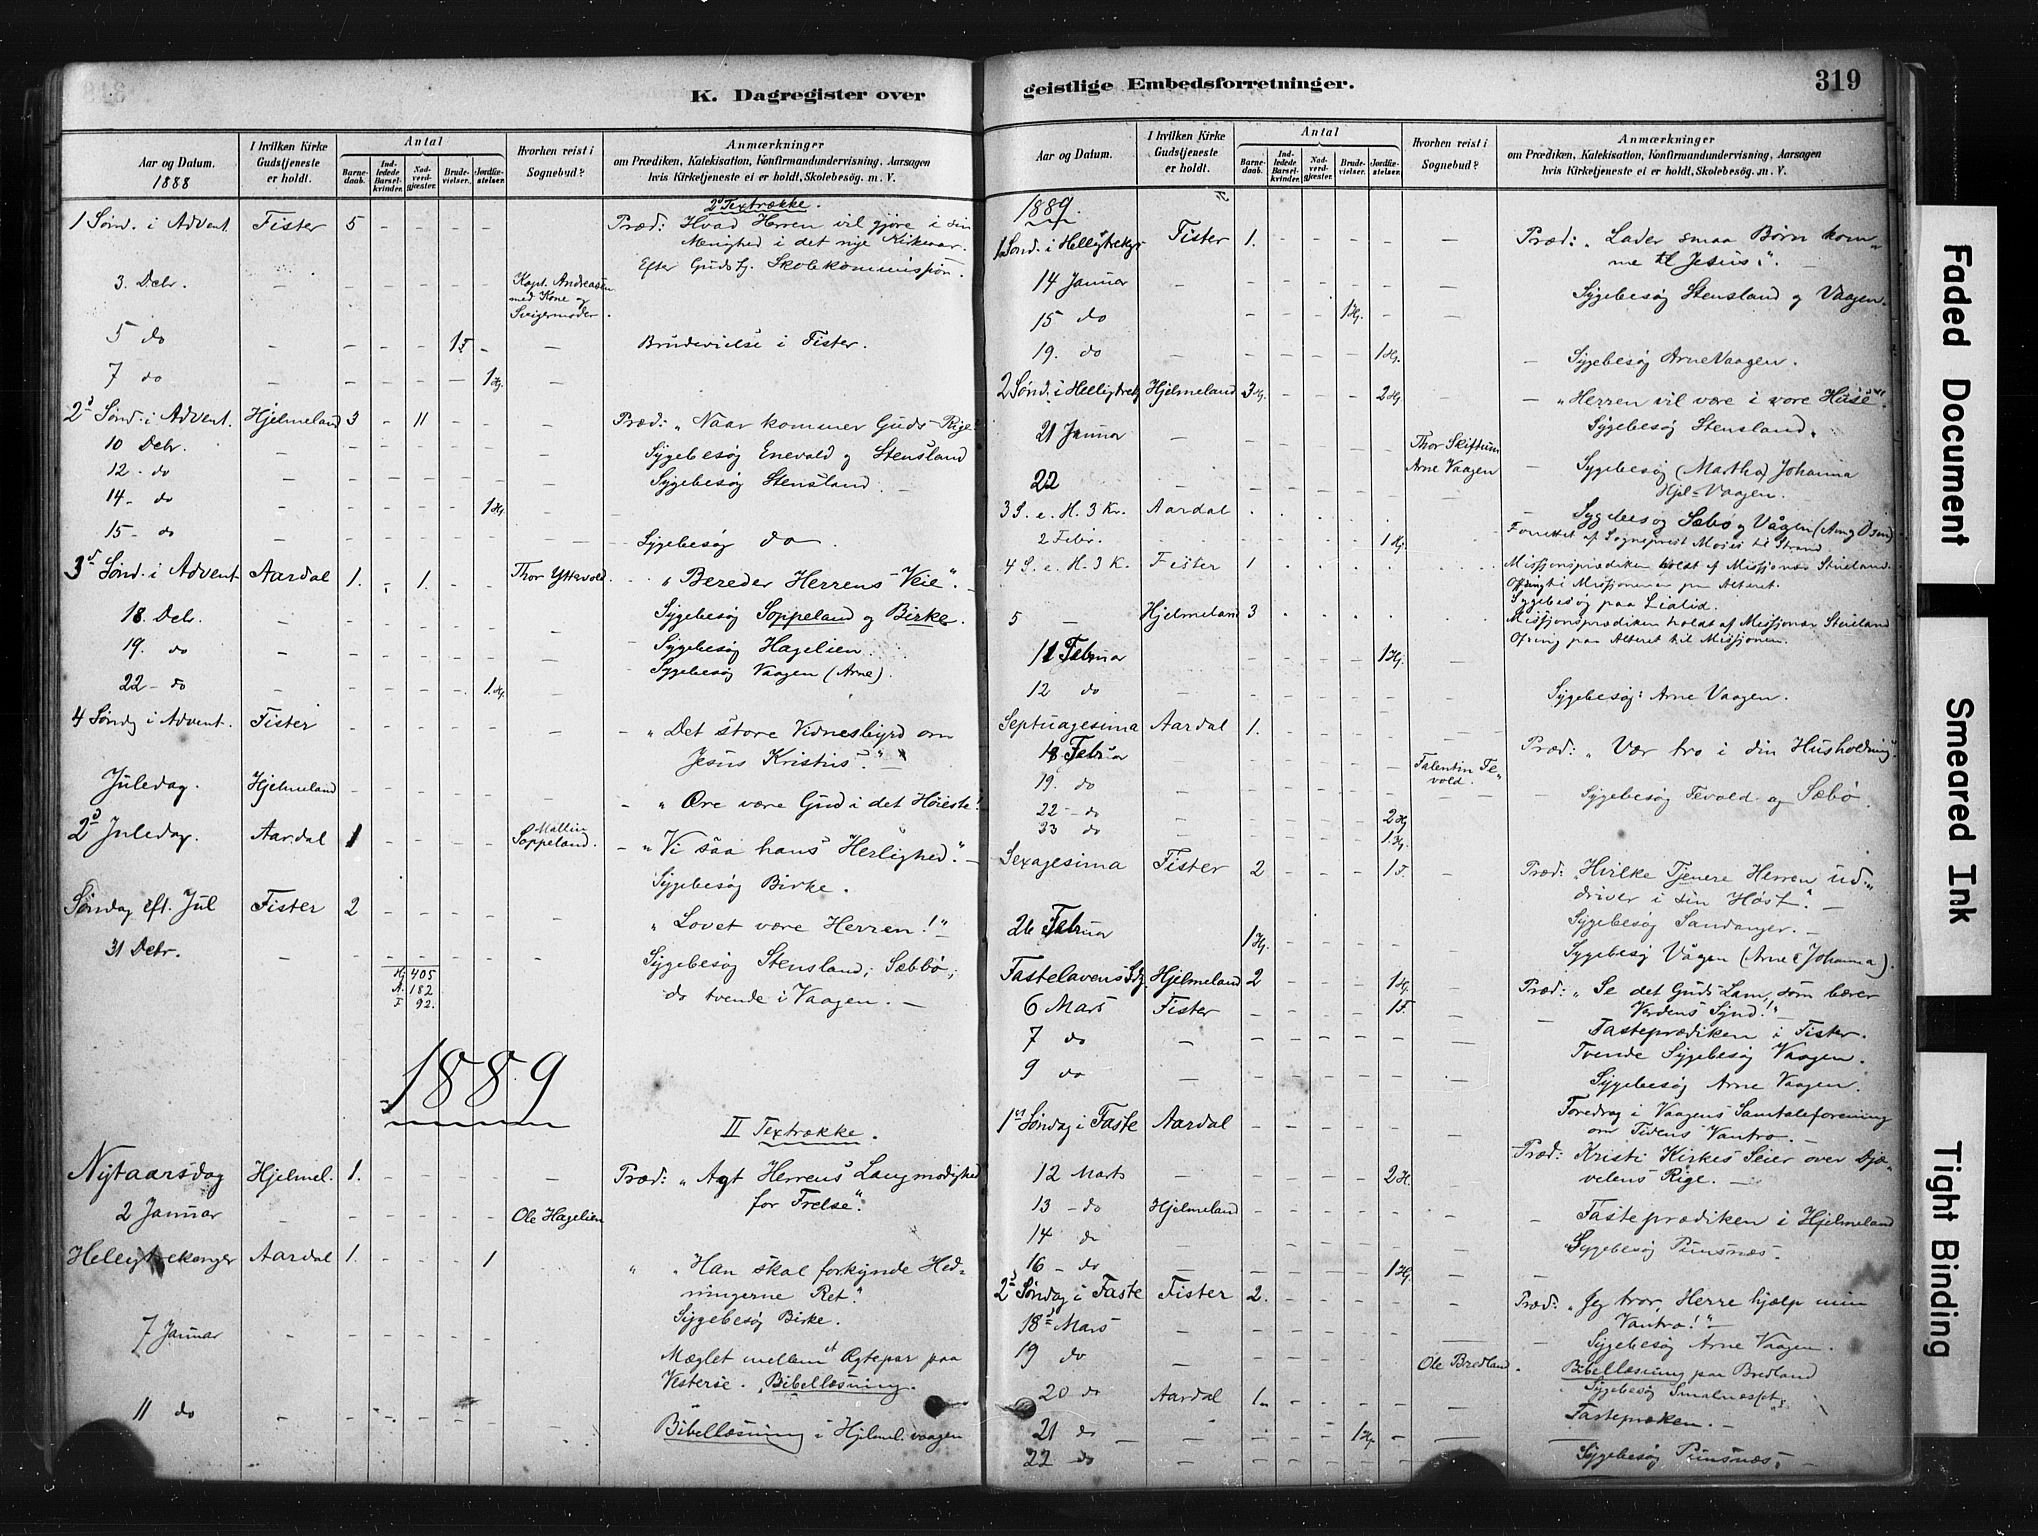 K. Dagregister over
Aar og Datum.
1888
I hvilken Kirke Gudstjeneste er holdt.
Antal
Barne-daab.
Ind-ledede Barsel-kvinder.
Nad-verd-gjæster.
Brude-vielser.
Jordfæ-stelser.
Hvorhen reist i Sognebud?
Anmærkninger
om Prædiken, Katekisation, Konfirmandundervisning, Aarsagen
hvis Kirketjeneste ei er holdt, Skolebesøg. m. V.
2d Textrække.
1 Sønd. i Advent Fister 5 - - - - Præd: Hvad Herren vil gjøre i sin
Menighed i det nye Kirkeaar.
Efter Gudstj. Skolekommission.
3. Decbr. - - - - - - Kapt. Andreasen
med Kone og
Svigermoder.
5 do - - - - 1 F. - - Brudevielse i Fister.
7 do - - - - - 1 Hj. -
2d Sønd. i Advent. Hjelmeland 3 - 11 - - Præd: „Naar kommer Guds Rige"
10 Decbr. - - - - - - Sygebesøg Enevald og Stensland
12. do - - - - - - Sygebesøg Stensland.
14 - do - - - - - 1 Hj.
15 - do - - - - - - Sygebesøg do.
3d Sønd. i Advent Aardal 1. - 1. - - Thor Yttevold. „Bereder Herrens Veie".
18 Decbr. - - - - - - Sygebesøg Soppeland og Birke.
19. do - - - - - - Sygebesøg Hagelien.
Sygebesøg Vaagen (Arne).
22 - do - - - - - 1 Hj.
4 Søndg i Advent. Fister - - - - - - „Det store Vidnesbyrd om
Jesus Kristus."
Juledag. Hjelmeland - - - - - - „Ære være Gud i det Høieste!
2d Juledag. Aardal 1 - - - - Mallin
Soppeland. - „Vi saa hans Herlighed."
Sygebesøg Birke.
Søndag eft. Jul Fister 2 - - - - - „Lovet være Herren!"
31 Decbr. - - - - - - - Sygebesøg Stensland, Sæbbö,
do tvende i Vaagen.
Hj. 405
A. 182
F 92.
1889
II Textrække.
Nytaarsdag Hjelmel. 1. - - - - - Præd: „Agt Herrens Langmodighed
for Frelse".
2 Januar - - - - - - Ole Hagelien
Aardal 1. - - - 1 „Han skal forkynde Hed-
ningerne Ret."
Sygebesøg Birke.
7 Januar - - - - - - - Mæglet mellem et Ægtepar paa
Vesterse. Bibellæsning.
11 do - - - - - - - Bibellæsning i Hjelml. vaagen
geistlige Embedsforretninger.
319
Aar og Datum.
I hvilken Kirke Gudstjeneste er holdt.
Antal
Barne-daab.
Ind-ledede Barsel-kvinder.
Nad-verd-gjæster.
Brude-vielser.
Jordfæ-stelser.
Hvorhen reist i Sognebud?
Anmærkninger
om Prædiken, Katekisation, Konfirmandundervisning, Aarsagen
hvis Kirketjeneste ei er holdt, Skolebesøg. m. V.
1889.
1 Sønd. i Helligtrekgr Fister 1. - - - - - Præd: „Lader smaa Børn kom-
me til Jesus."
14 Januar - - - - - - - Sygebesøg Stensland og Vaagen.
15 do - - - - 1 Hj. - -
19. do - - - - - 1 Hj. - Sygebesøg Arne Vaagen.
2 Sønd. i Helligtrekg Hjelmeland 3 Hj. - - - 2 Hj. - „Herren vil være i vore Huse".
21 Januar - - - - - - Sygebesøg Stensland.
Thor Skiftun
Arne Vaagen
22 - - - - - - Sygebesøg (Martha) Johanna
Hjel-Vaagen.
3 S. e. H. 3 Kr. Aardal - Sygebesøg Sæbø og Vågen
2 Febr. 1 Hj. Forrettet af Sogneprest Moses til Strand
4 S. e. H. 3 K. Fister 1 Missjonsprædiken holdt af Missjonær
Ofring til Missjonen paa Alteret.
Sygebesøg paa
5 - Hjelmeland 3 Missjonsprædiken holdt af Missjonær
Ofring paa Alteret til Missjonen.
11 Februar - - - - - 1 Hj. -
12 do - - - - - - - Sygebesøg: Arne Vaagen.
Septuagesima Aardal 1. - - - - - Præd: „Vær tro i din Husholdning"
18 Februar - - - - - - Falentin Te-
vold.
19. do - - - - - - - Sygebesøg Tevold og Sæbö.
22 - do - - - - - 2 Hj
33 do - - - - - 1 Hj.
Sexagesima Fister 2 - - - 1 F. - Præd: „Hvilke Tjenere Herren ud-
driver i sin Høst."
Sygebesøg Sandanger.
26 Februar - 1 Hj. - - - - - Sygebesøg Vågen (Arne & Johanna).
Fastelavens Sdg Hjelmeland 2 - - - 1 Hj. - Præd: „Se det Guds Lam, som bærer
Verdens Synd!"
6 Mars Fister - - - - 1 F. - Fasteprædiken i Fister.
7 do - - - - - - - Tvende Sygebesøg Vaagen.
9 do - - - - - - - Sygebesøg Arne Vaagen.
Foredrag i Vaagens Samtaleforening
om Tidens Vantro.
1ste Søndag i Faste Aardal - - - - - - Præd: Kristi Kirkes Seier over Djæ-
velens Rige.
12 Marts - - - - - 2 H. -
13 - do Hjelmeland - - - - - - Fasteprædiken i Hjelmeland
14 do - - - - - - - Sygebesøg Pundsnæs.
16 - do - - - - - 1 Hj -
2d Søndag i Faste Fister 2. - - - - - Præd: „Jeg tror, Herre hjælp min
Vantro!"
18 Mars - - - - - - - Sygebesøg Arne Vaagen.
19 do - - - - - - Ole Bredland. Bibellæsning paa Bredland
Sygebesøg
20 do Aardal 1 - - - - - Fastepræken.
21 do - - - - 1 Hj. - -
22 do - - - - - - Sygebesøg Pundsnæs.
Faded Document
Smeared Ink
Tight Binding